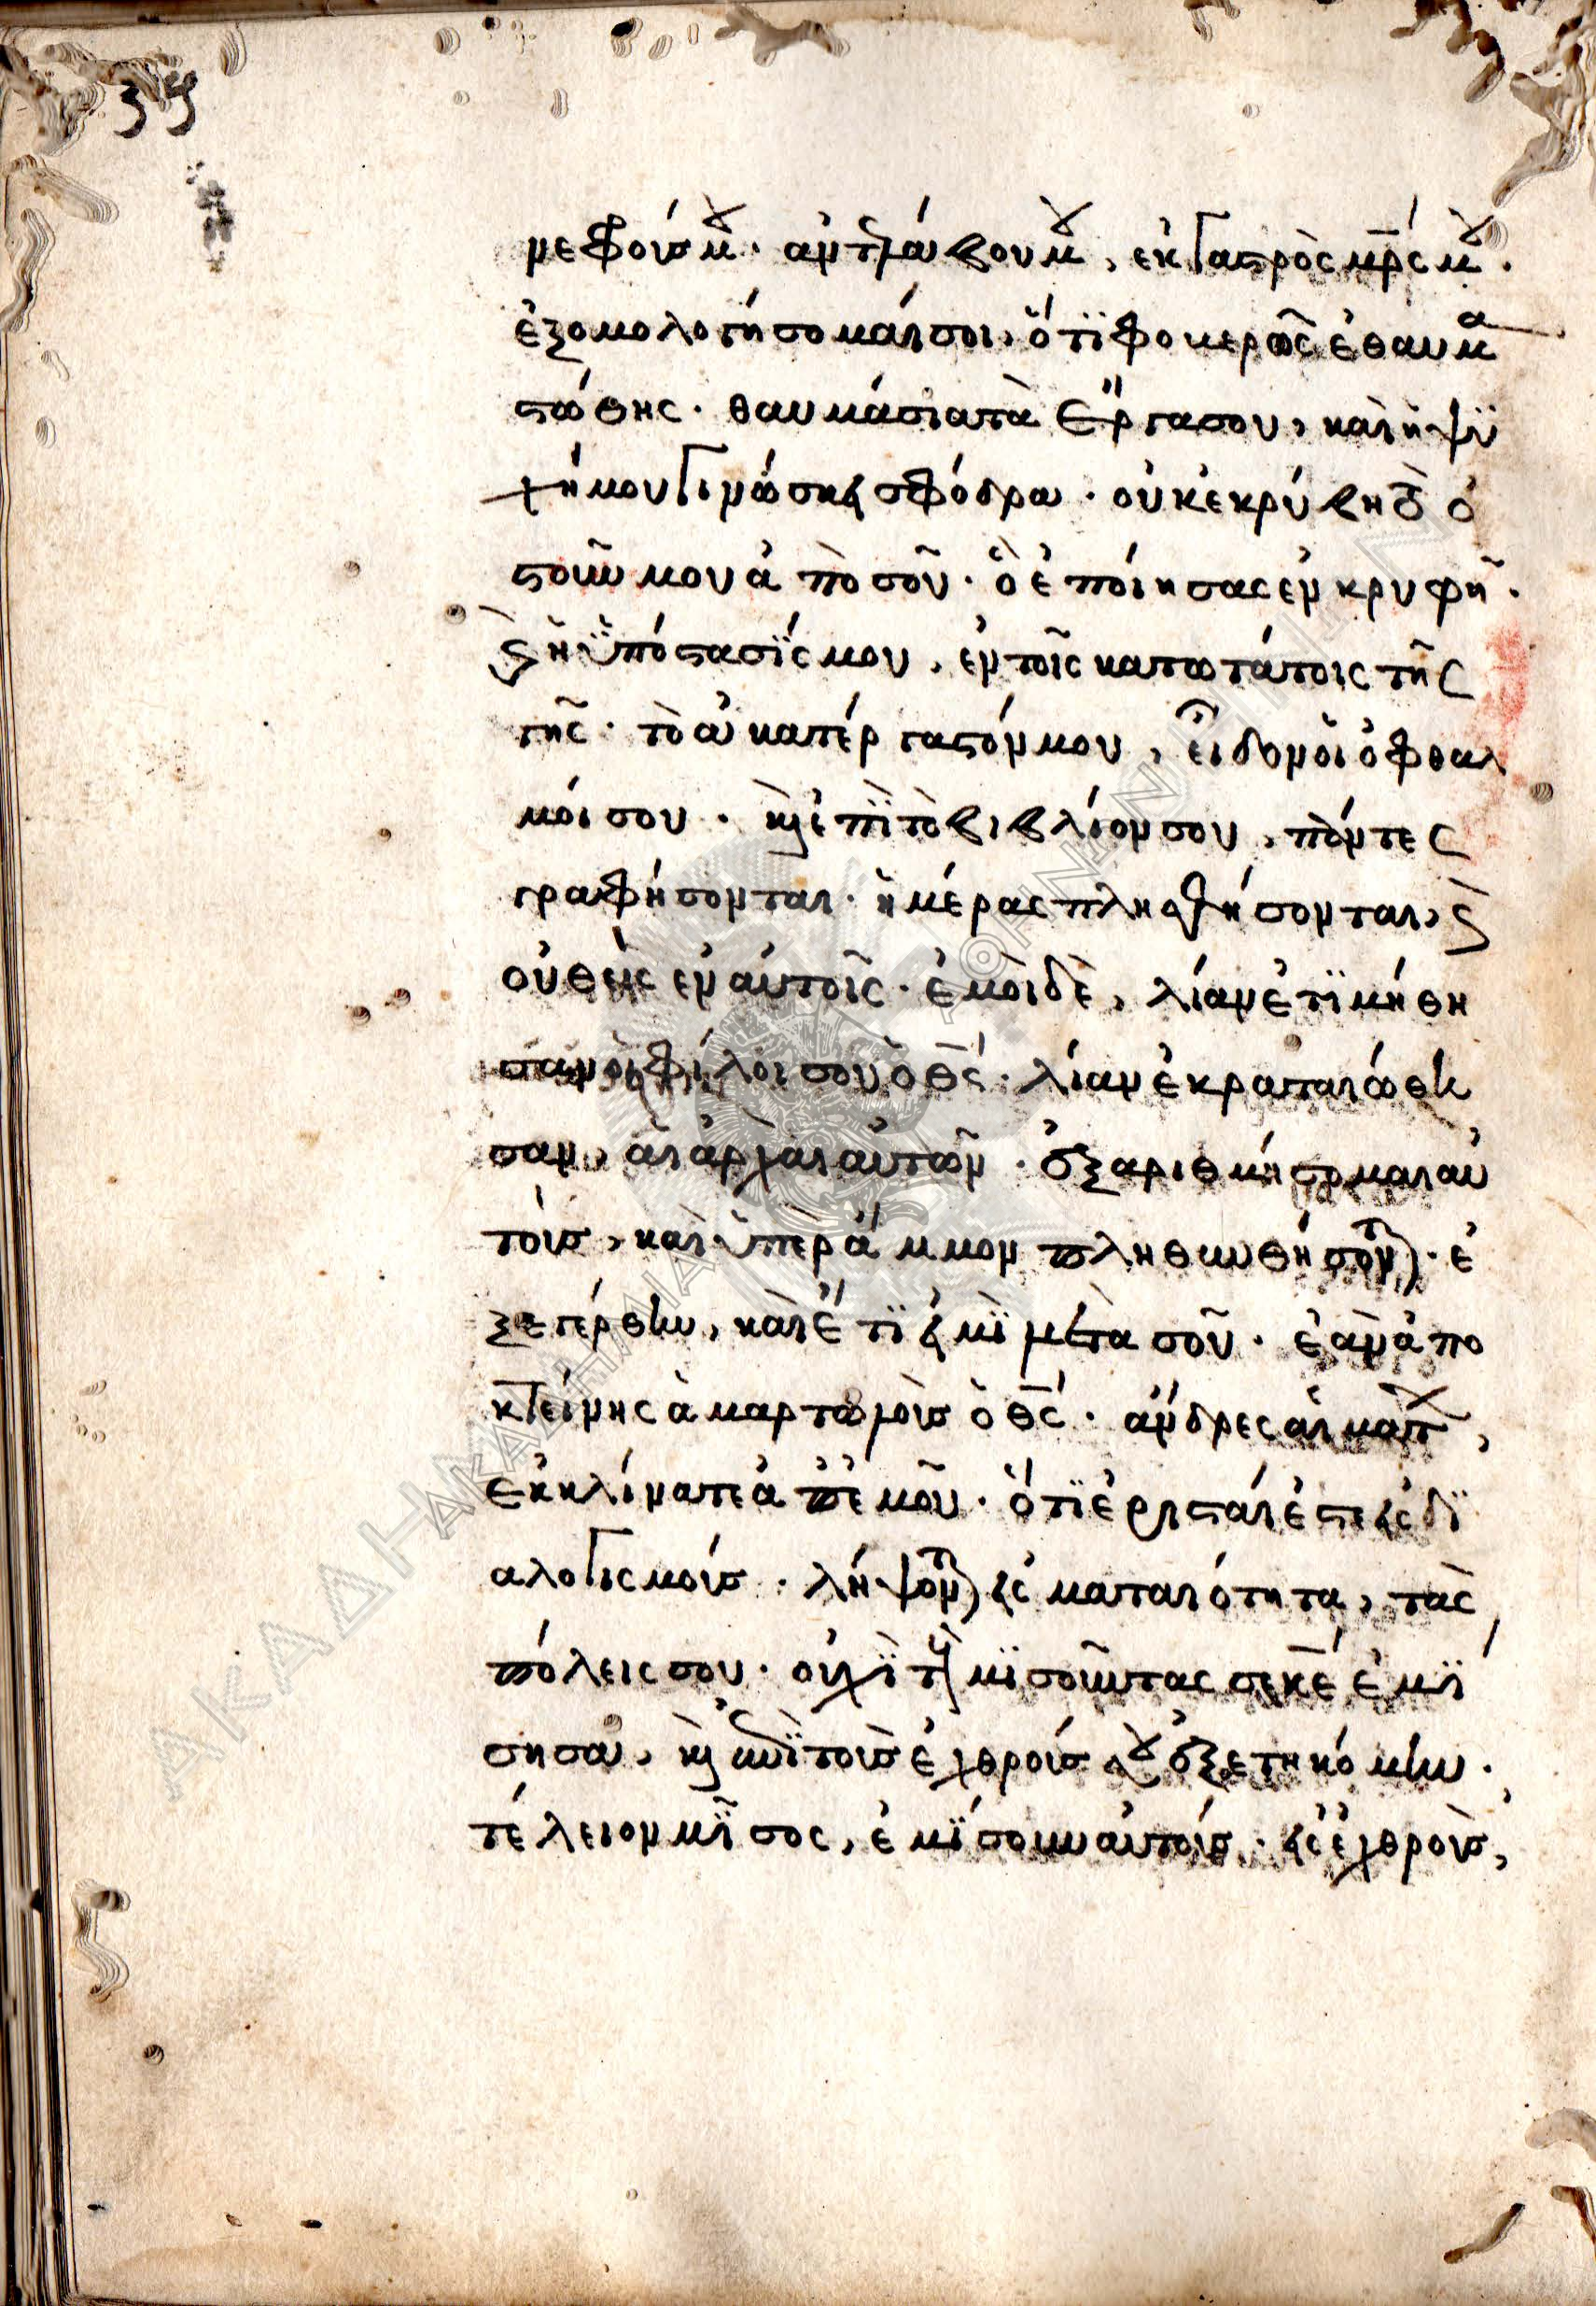 35
νεφρούς μου. ἀντελάβου μου, ἐκ γαστρὸς μρς μου.
ἐξομολογήσομαί σοι, ὅτϊ φοβερῶς ἐθαυμα
στώθης. θαυμάσια τὰ ἔργα σου, καὶ ἡ ψϋ
χή μου γινώσκει σφόδρα. οὐκ ἐκρύβη τὸ ὀ
στοῦν μου ἀπὸ σοῦ. ὃ ἐποίησας ἐν κρυφῆ.
καὶ ἡ ϋπόστασΐς μου, ἐν τοῖς κατωτάτοις τῆς
γῆς. τὸ ἀκατέργαστόν μου, εἶδον οἱ ὀφθαλ
μοί σου. καὶ ἐπῒ τὸ βιβλίον σου, πάντες
γραφήσονται. ἡμέρας πλασθήσονται, καὶ
οὐθεὶς ἐν αὐτοῖς. ἐμοὶ δὲ, λίαν ἐτϊμήθη
σαν οἱ φίλοι σου ὁ θς. λίαν ἐκραταιώθη
σαν, αἱ ἀρχαὶ αὐτῶν. ἐξαριθμήσομαι αὐ
τούς, καὶ ὑπὲρ ἄμμον πληθυνθήσονται. ἐ
ξεγέρθην, καὶ ἔτϊ εἰμῒ μετὰ σοῦ. ἐὰν ἀπο
κτείνης ἁμαρτωλοὺς ὁ θς. ἄνδρες αἱμάτων,
ἐκκλίνατε ἀπ' ἐμοῦ. ὅτϊ ἐρισταί ἐστε εἰς δϊ
αλογισμούς. λήψονται εἰς ματαιότητα, τὰς
πόλεις σου. οὐχῒ τοὺς μϊσοῦντάς σε κε ἐμΐ
σησα, καὶ ἐπῒ τοὺς ἐχθρούς σου ἐξετηκόμην.
τέλειον μῖσος, ἐμΐσουν αὐτούς. εἰς ἐχθροὺς,
ΑΚΑΔΗΜΙΑ
ΑΚΑΔΗΜΙΑ
ΑΘΗΝΩΝ